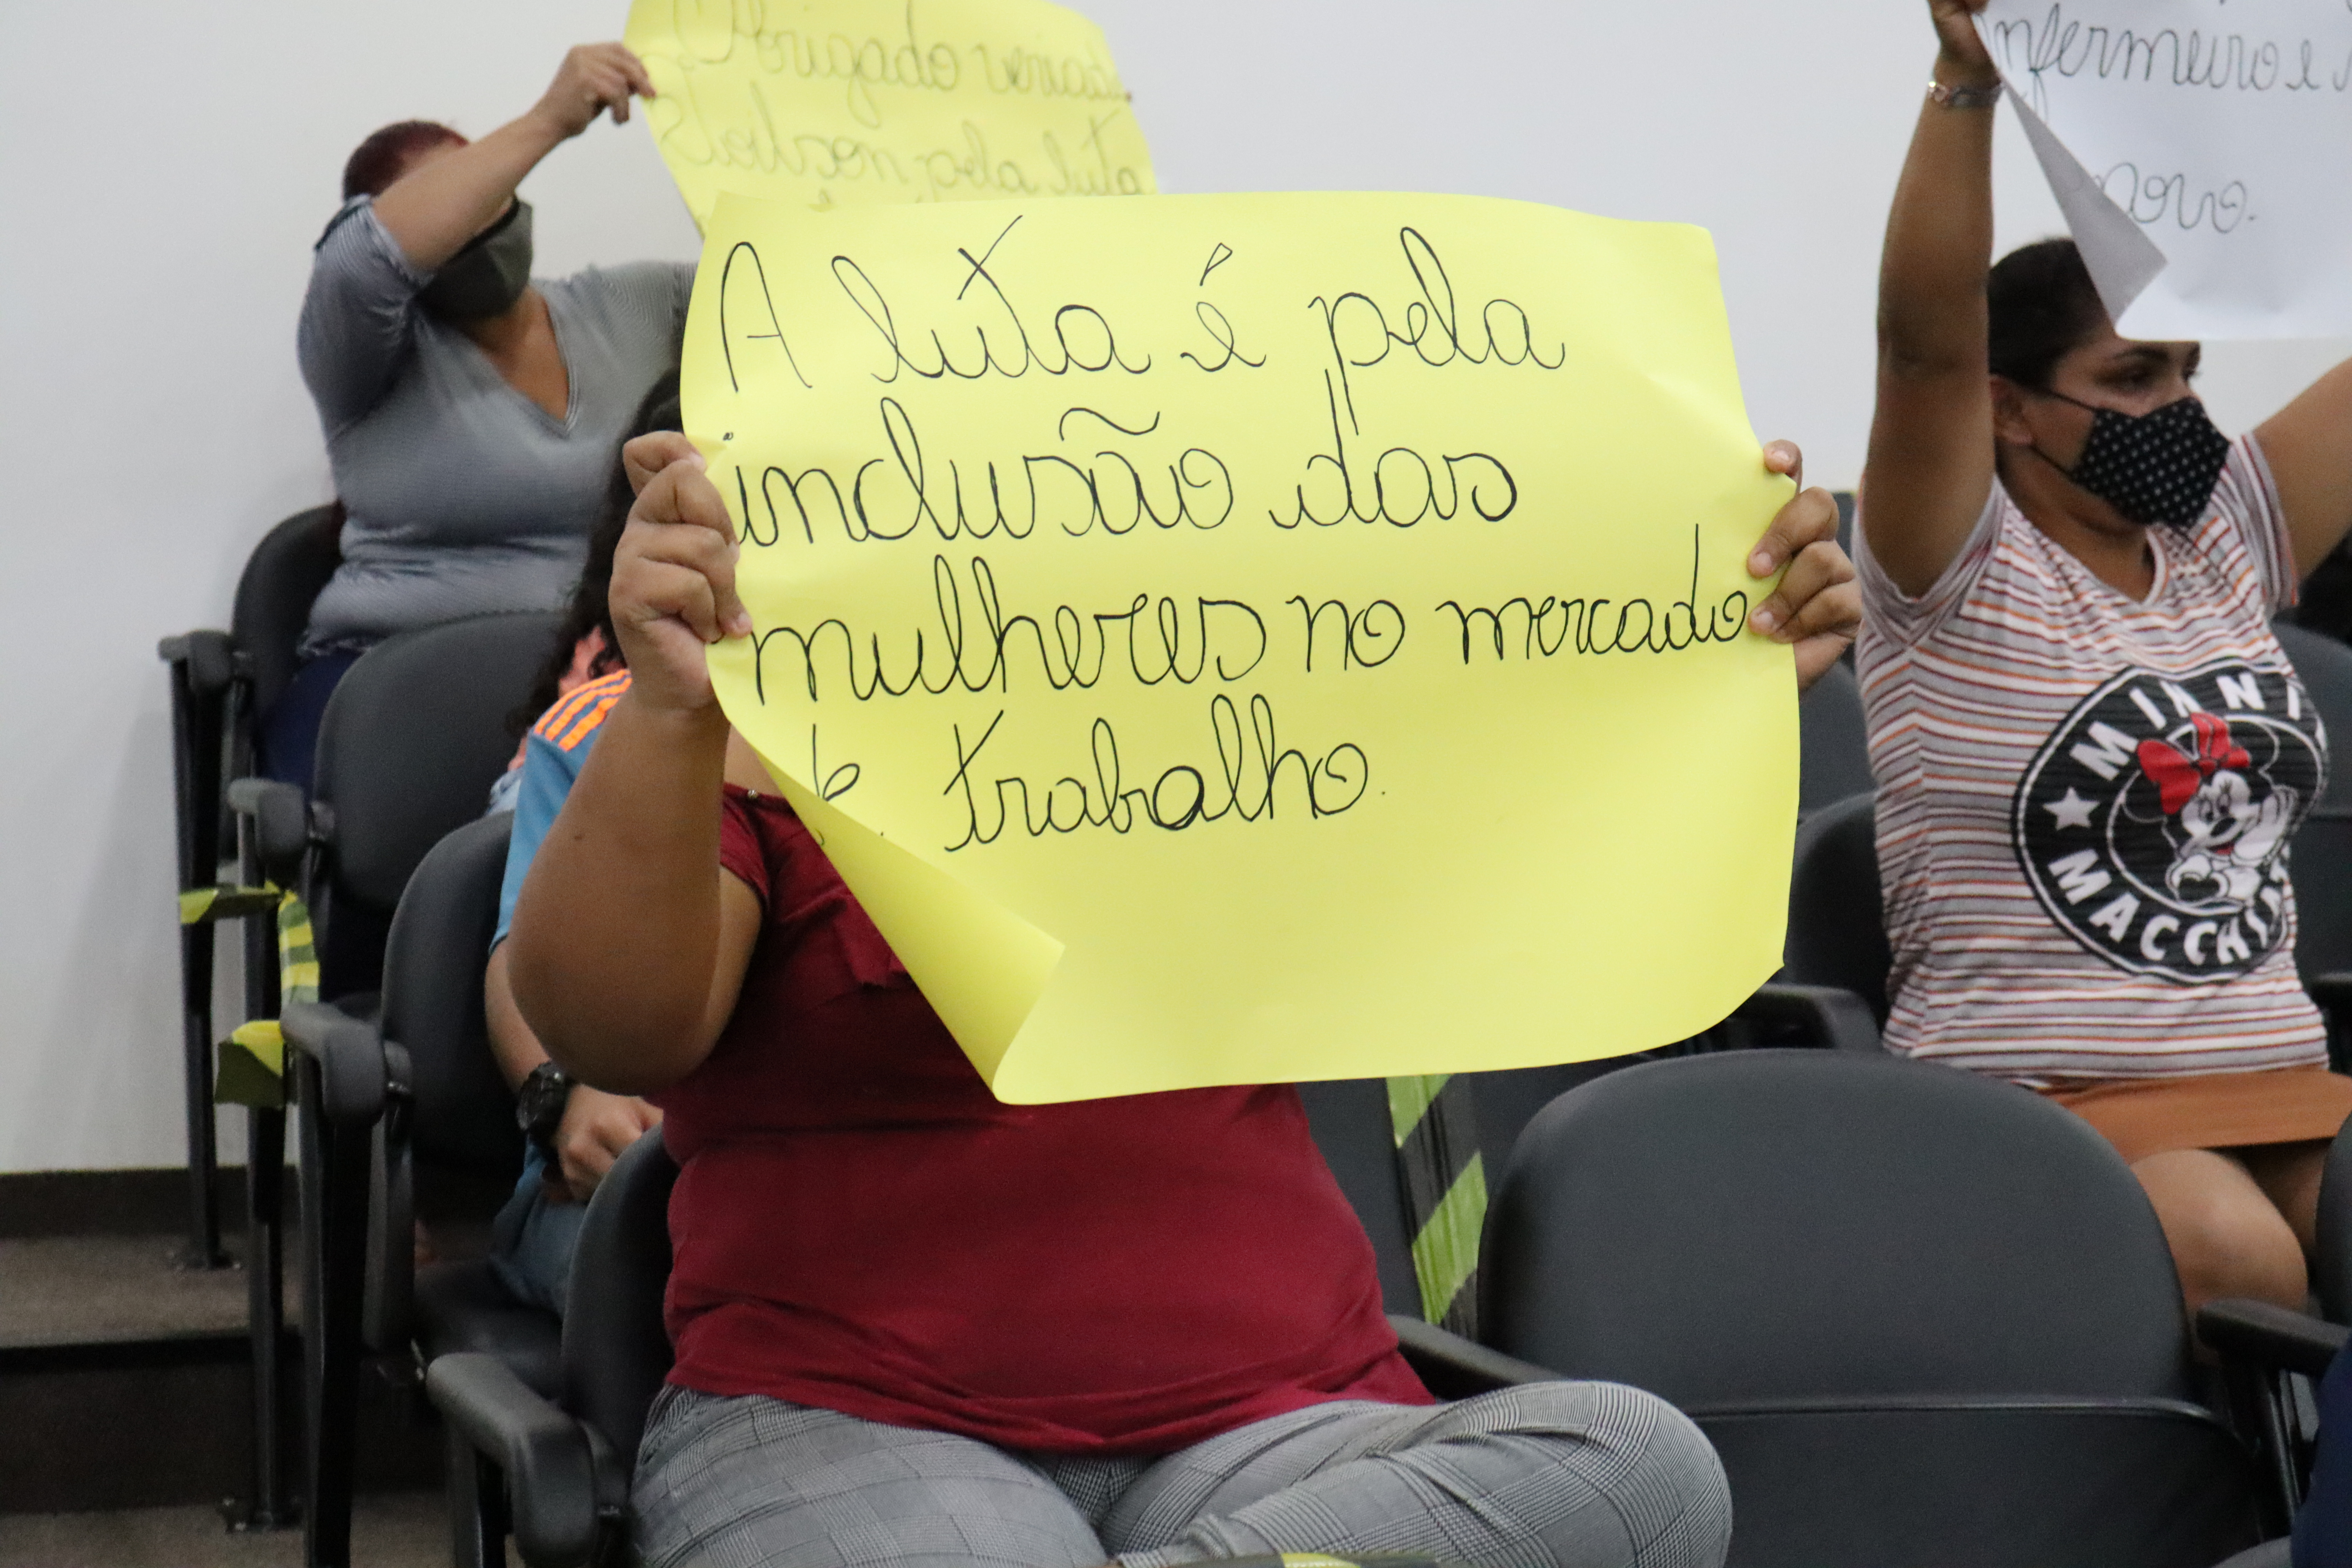 Obrigado
pela luta
A luta é pela
inclusão das
mulheres no mercado
de trabalho.
nfermeiro e
povo.
MINNI
MACCHI